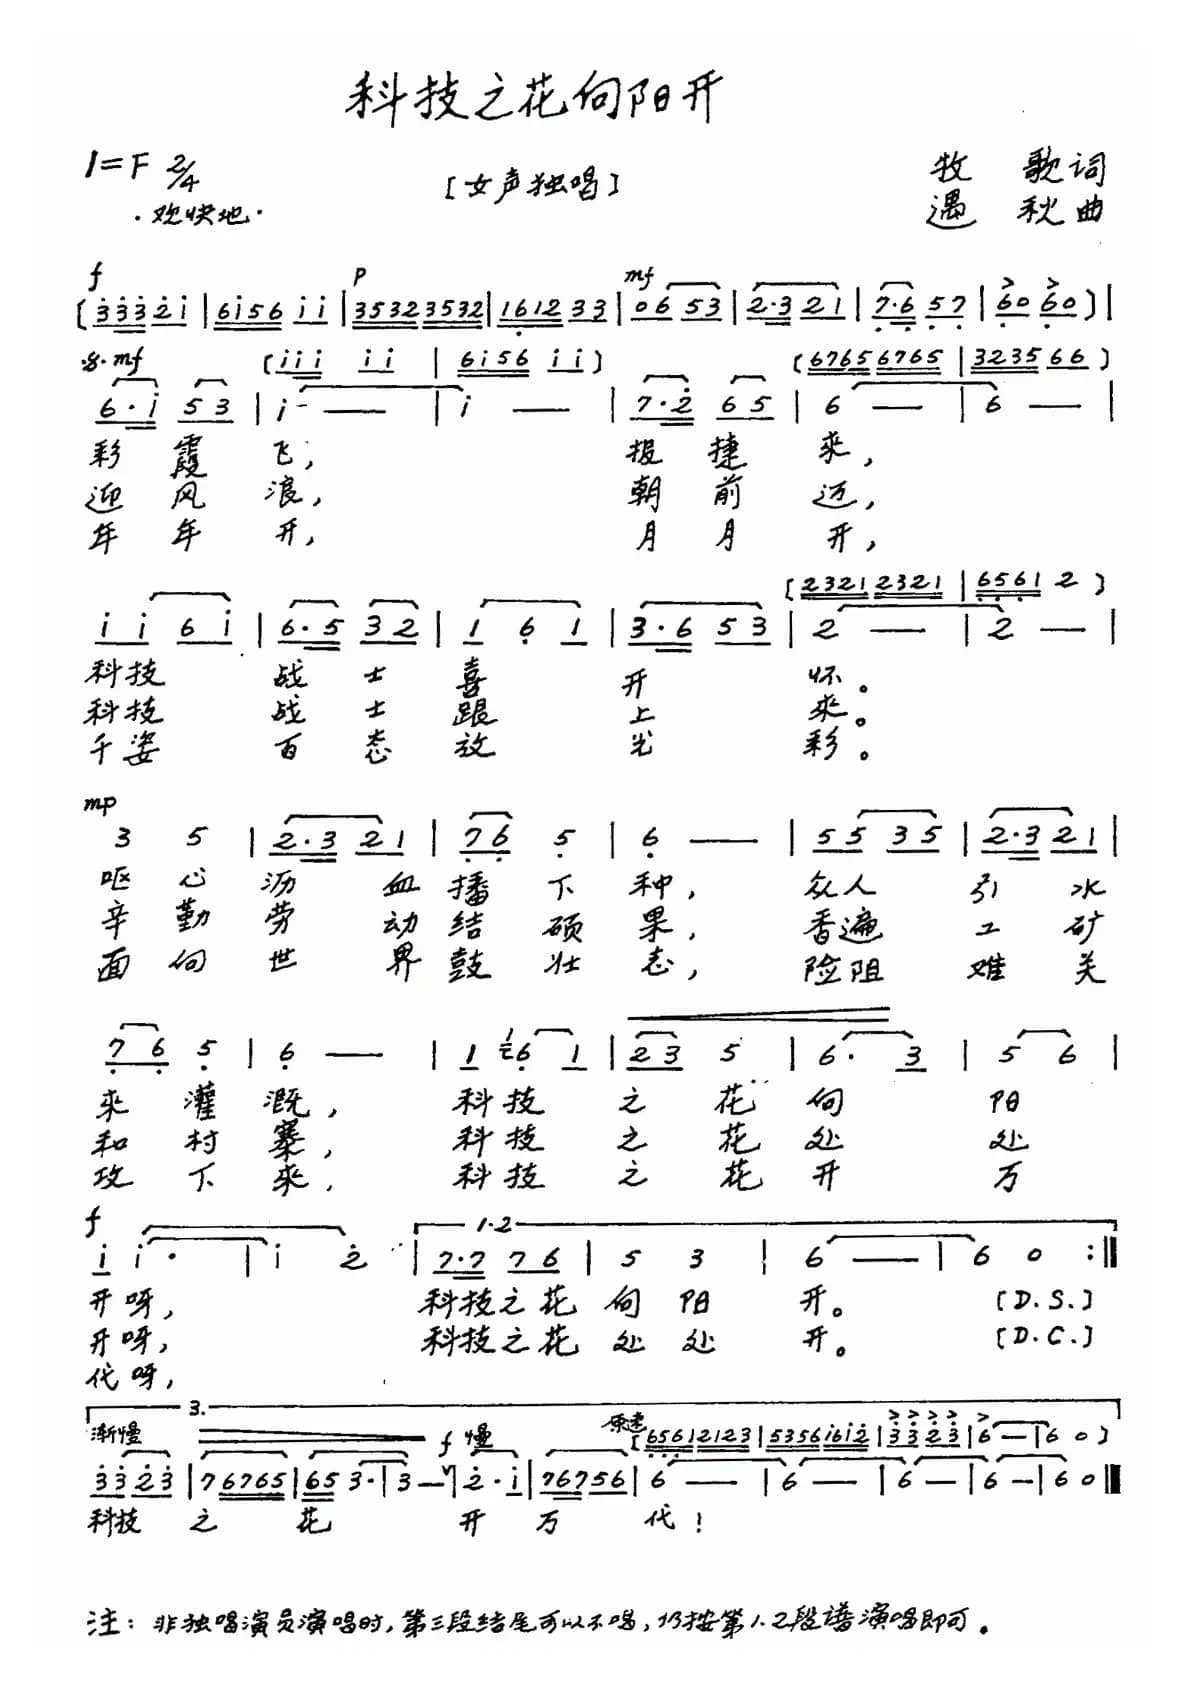 科技之花向阳开
1=F 2/4
[女声独唱]
牧 歌词
·欢快地·
遇 秋曲
f p mf
(3̇3̇3̇2̇1̇ | 6i56 ii | 35323532 | 161233 | 06 53 | 2·3 21 | 7·6 57 | 60 60) |
mf (iii ii | 6i56 ii) (67656765 | 323566)
6·i 53 | i — | i — | 7·2̇ 65 | 6 — | 6 — |
彩霞飞, 报捷来,
迎风浪, 朝前迈,
年年开, 月月开,
(23212321 | 6561 2)
ii 6i | 6·5 32 | 1 6 1 | 3·6 53 | 2 — | 2 — |
科技 战士喜 开 怀。
科技 战士跟 上 来。
千姿 百态放 光 彩。
mp
3 5 | 2·3 21 | 76 5 | 6 — | 55 35 | 2·3 21 |
呕心沥血播下种, 众人引水
辛勤劳动结硕果, 香遍工矿
面向世界鼓壮志, 险阻难关
76 5 | 6 — | 1 6 1 | 23 5 | 6· 3 | 5 6
来灌溉, 科技之花向阳
和村寨, 科技之花处处
攻下来, 科技之花开万
f 1·2
i i· | i 2̇ | 7·7 76 | 5 3 | 6 — | 6 0 :‖
开呀, 科技之花向阳开。 [D.S.]
开呀, 科技之花处处开。 [D.C.]
代呀,
3.
渐慢 f 慢 原速 (65612123 | 53561612̇ | 3̇3̇2̇3̇ | 6 — | 6 0)
3̇3̇2̇3̇ | 76765 | 65 3· | 3 — | 2̇· i | 76756 | 6 — | 6 — | 6 — | 6 — | 6 0 ‖
科技之花 开万代!
注: 非独唱演员演唱时, 第三段结尾可以不唱, 仍按第1.2段谱演唱即可。